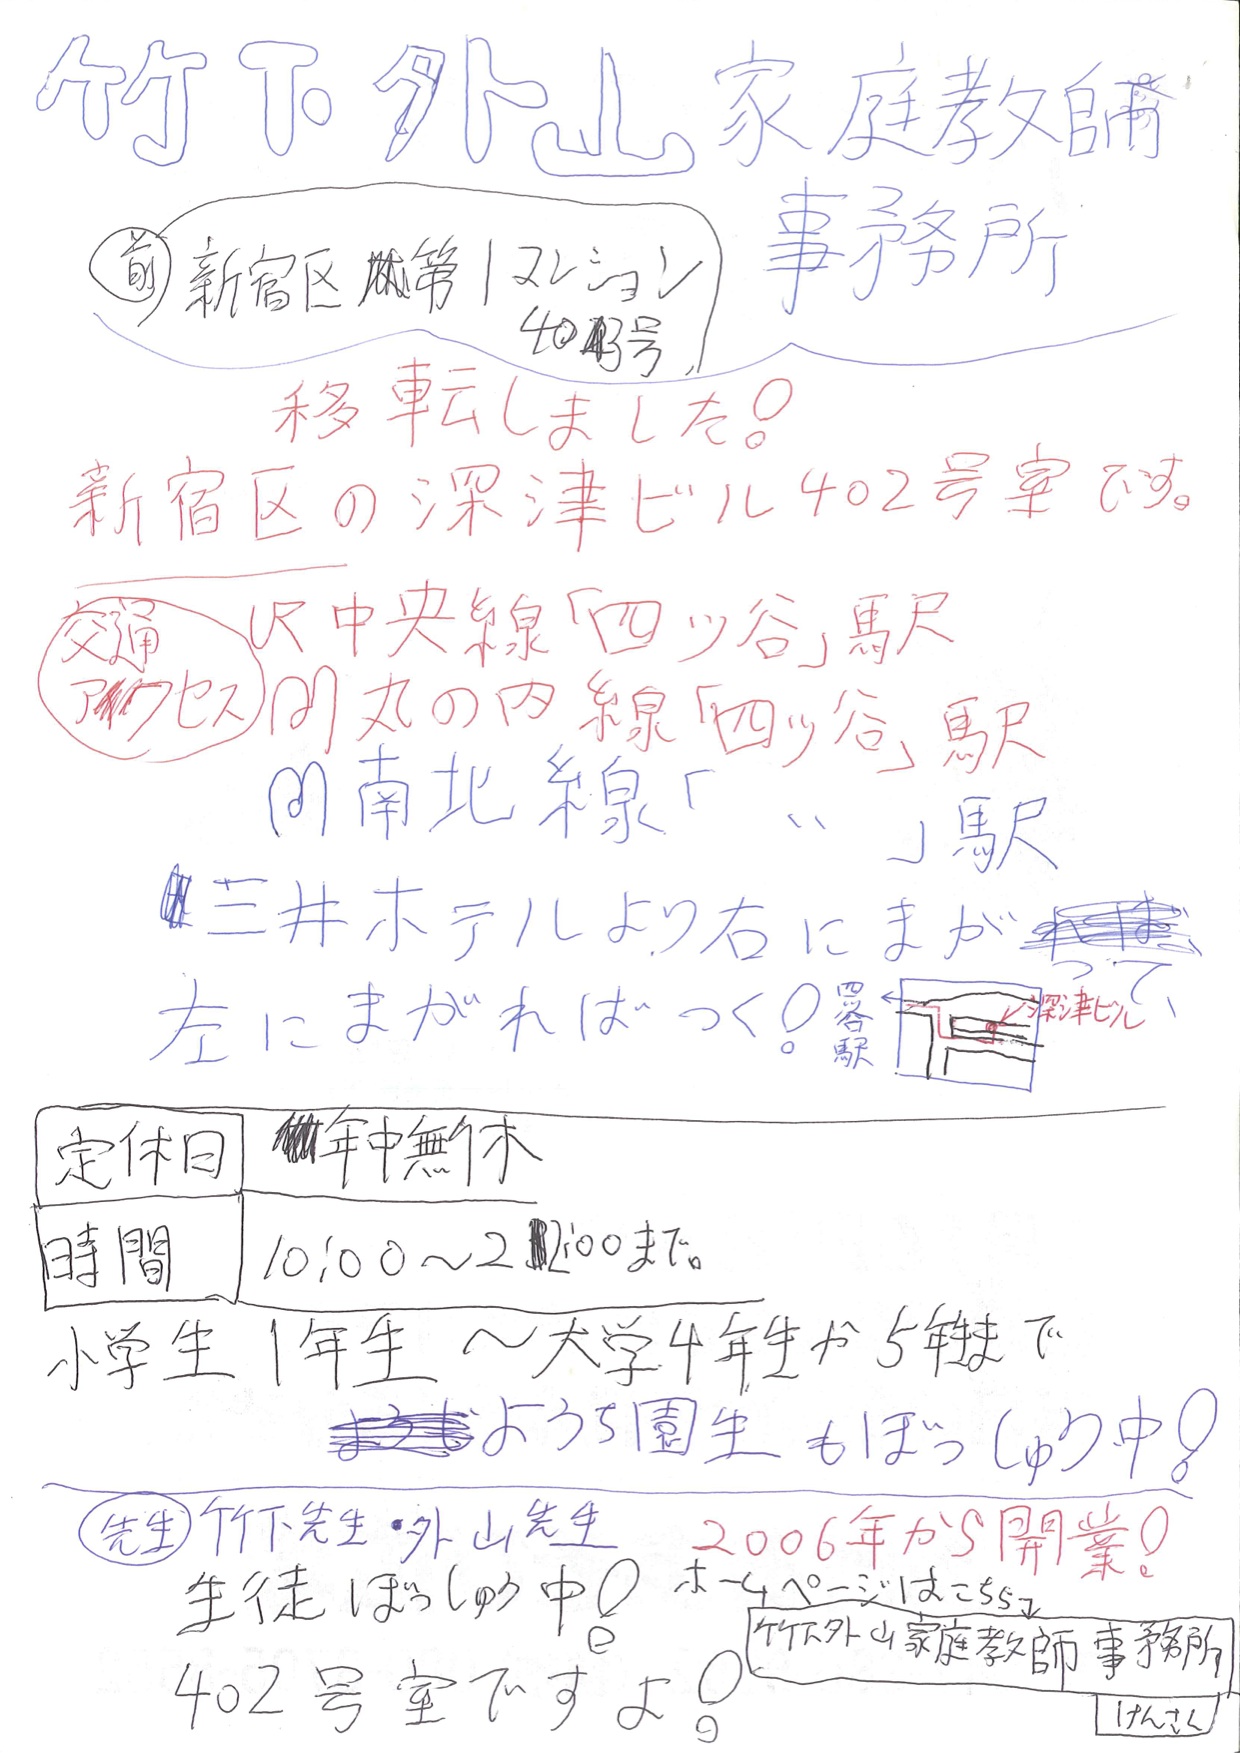 竹下外山家庭教師
事務所
前 新宿区 第1マンション
40 号
移転しました!
新宿区の深津ビル402号室です。
交通
アクセス
JR中央線「四ツ谷」駅
丸の内線「四ツ谷」駅
南北線「〃」駅
三井ホテルより右にまが
って、
左にまがればつく!
四ツ谷駅
深津ビル
定休日 年中無休
時間 10:00〜22:00まで。
小学生1年生〜大学4年生か5年生まで
ようち園生もぼっしゅう中!
先生 竹下先生・外山先生
2006年から開業!
生徒ぼっしゅう中!
ホームページはこちら
竹下外山家庭教師事務所
けんさく
402号室ですよ!